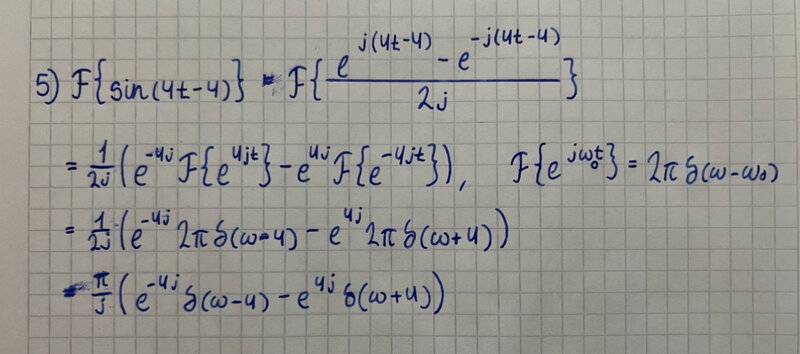 5) F{sin(4t-4)} = F{ (e^{j(4t-4)} - e^{-j(4t-4)}) / 2j }
= 1/2j (e^{-4j} F{e^{4jt}} - e^{4j} F{e^{-4jt}}), F{e^{jω₀t}} = 2π δ(ω-ω₀)
= 1/2j (e^{-4j} 2π δ(ω-4) - e^{4j} 2π δ(ω+4))
= π/j (e^{-4j} δ(ω-4) - e^{4j} δ(ω+4))